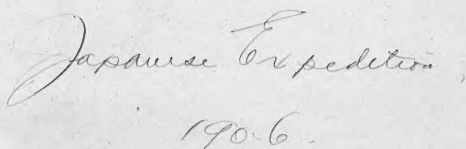 Japanese Expedition,
1906.